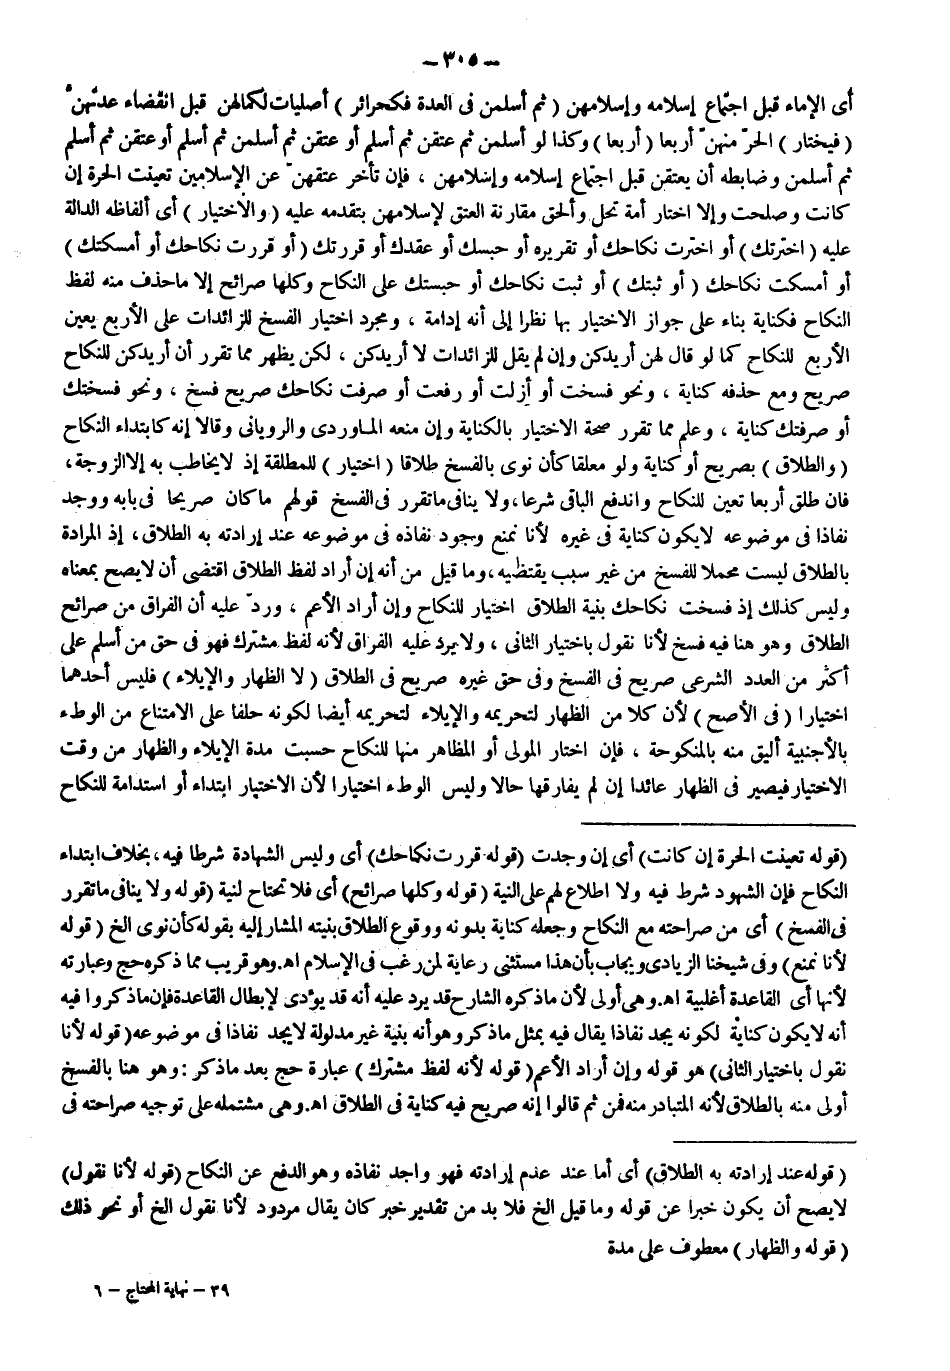 - ٣٠٥ -
أى الإماء قبل اجتماع إسلامه وإسلامهن ( ثم أسلمن فى العدة فكحرائر ) أصليات لكمالهن قبل انقضاء عدتهنّ
( فيختار ) الحرّ منهنّ أربعا ( أربعا ) وكذا لو أسلمن ثم عتقن ثم أسلم أو عتقن ثم أسلمن ثم أسلم أو عتقن ثم أسلم
ثم أسلمن وضابطه أن يعتقن قبل اجتماع إسلامه وإسلامهن ، فإن تأخر عتقهنّ عن الإسلامين تعينت الحرة إن
كانت وصلحت وإلا اختار أمة تحل وألحق مقارنة العتق لإسلامهن بتقدمه عليه ( والاختيار ) أى ألفاظه الدالة
عليه ( اخترتك ) أو اخترت نكاحك أو تقريره أو حبسك أو عقدك أو قررتك ( أو قررت نكاحك أو أمسكتك )
أو أمسكت نكاحك ( أو ثبتك ) أو ثبت نكاحك أو حبستك على النكاح وكلها صرائح إلا ماحذف منه لفظ
النكاح فكناية بناء على جواز الاختيار بها نظرا إلى أنه إدامة ، ومجرد اختيار الفسخ للزائدات على الأربع يعين
الأربع للنكاح كما لو قال لهن أريدكن وإن لم يقل للزائدات لا أريدكن ، لكن يظهر مما تقرر أن أريدكن للنكاح
صريح ومع حذفه كناية ، ونحو فسخت أو أزلت أو رفعت أو صرفت نكاحك صريح فسخ ، ونحو فسختك
أو صرفتك كناية ، وعلم مما تقرر صحة الاختيار بالكناية وإن منعه الماوردى والرويانى وقالا إنه كابتداء النكاح
( والطلاق ) بصريح أو كناية ولو معلقا كأن نوى بالفسخ طلاقا ( اختيار ) للمطلقة إذ لايخاطب به إلاالزوجة،
فان طلق أربعا تعين للنكاح واندفع الباقى شرعا،ولا ينافى ماتقرر فى الفسخ قولهم ماكان صريحا فى بابه ووجد
نفاذا فى موضوعه لايكون كناية فى غيره لأنا نمنع وجود نفاذه فى موضوعه عند إرادته به الطلاق، إذ المرادة
بالطلاق ليست محملا للفسخ من غير سبب يقتضيه،وما قيل من أنه إن أراد لفظ الطلاق اقتضى أن لايصح بمعناه
وليس كذلك إذ فسخت نكاحك بنية الطلاق اختيار للنكاح وإن أراد الأعم ، وردّ عليه أن الفراق من صرائح
الطلاق وهو هنا فيه فسخ لأنا نقول باختيار الثانى ، ولايرد عليه الفراق لأنه لفظ مشترك فهو فى حق من أسلم على
أكثر من العدد الشرعى صريح فى الفسخ وفى حق غيره صريح فى الطلاق ( لا الظهار والإيلاء ) فليس أحدهما
اختيارا ( فى الأصح ) لأن كلا من الظهار لتحريمه والإيلاء لتحريمه أيضا لكونه حلفا على الامتناع من الوطء
بالأجنبية أليق منه بالمنكوحة ، فإن اختار المولى أو المظاهر منها للنكاح حسبت مدة الإيلاء والظهار من وقت
الاختيار فيصير فى الظهار عائدا إن لم يفارقها حالا وليس الوطء اختيارا لأن الاختيار ابتداء أو استدامة للنكاح
(قوله تعينت الحرة إن كانت) أى إن وجدت (قوله قررت نكاحك) أى وليس الشهادة شرطا فيه،بخلاف ابتداء
النكاح فإن الشهود شرط فيه ولا اطلاع لهم على النية (قوله وكلها صرائح) أى فلا تحتاج لنية (قوله ولا ينافى ماتقرر
فى الفسخ ) أى من صراحته مع النكاح وجعله كناية بدونه ووقوع الطلاق بنيته المشار إليه بقوله كأن نوى الخ ( قوله
لأنا نمنع) وفى شيخنا الزيادى ويجاب بأن هذا مستثنى رعاية لمن رغب فى الإسلام اهـ.وهو قريب مما ذكره حج وعبارته
لأنها أى القاعدة أغلبية اهـ.وهى أولى لأن ماذكره الشارح قد يرد عليه أنه قد يؤدى لإبطال القاعدة فإن ماذكروا فيه
أنه لايكون كناية لكونه يجد نفاذا يقال فيه بمثل ماذكر وهو أنه بنية غير مدلولة لايجد نفاذا فى موضوعه(قوله لأنا
نقول باختيار الثانى) هو قوله وإن أراد الأعم(قوله لأنه لفظ مشترك) عبارة حج بعد ماذكر : وهو هنا بالفسخ
أولى منه بالطلاق لأنه المتبادر منه فمن ثم قالوا إنه صريح فيه كناية فى الطلاق اهـ.وهى مشتمله على توجيه صراحته فى
( قوله عند إرادته به الطلاق) أى أما عند عدم إرادته فهو واجد نفاذه وهو الدفع عن النكاح (قوله لأنا نقول)
لايصح أن يكون خبرا عن قوله وما قيل الخ فلا بد من تقدير خبر كان يقال مردود لأنا نقول الخ أو نحو ذلك
( قوله والظهار ) معطوف على مدة
٣٩ - نهاية المحتاج - ٦